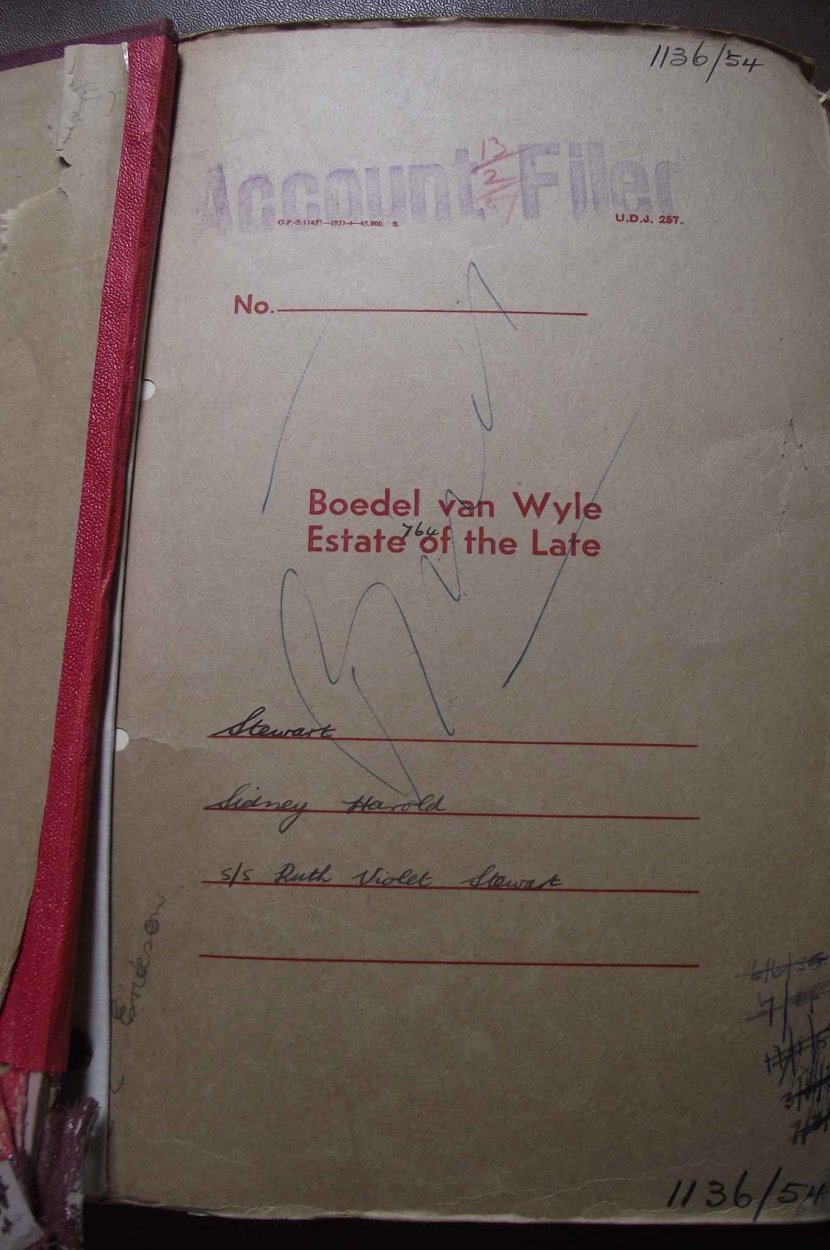 1136/54
Account Filed
G.P.-S.11457—1953-4—45,000. S.
U.D.J. 257.
No.
Boedel van Wyle
764
Estate of the Late
Stewart
Sidney Harold
s/s Ruth Violet Stewart
Erikson
1136/54